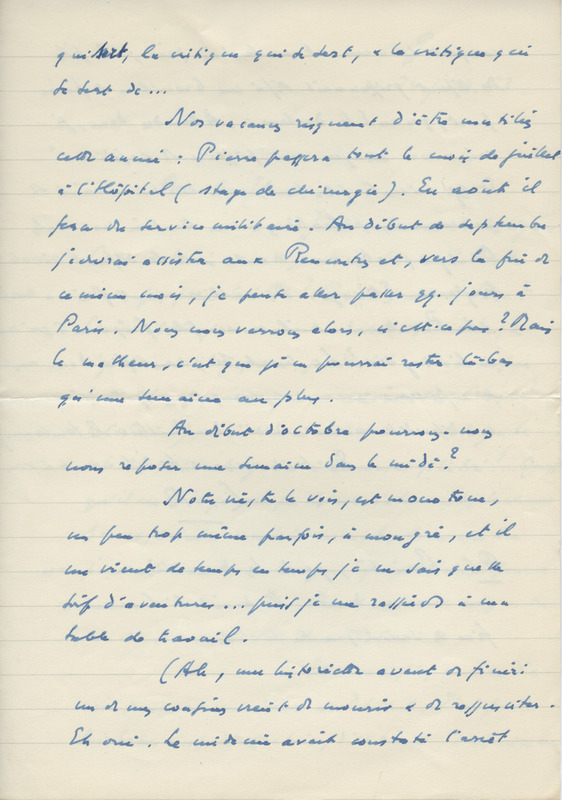 qui sert, la critique qui se sert, & la critique qui
se sert de...
Nos vacances risquent d'être mutilées
cette année : Pierre passera tout le mois de juillet
à l'Hôpital (stage de chirurgie). En août il
fera du service militaire. Au début de septembre
je devrai assister aux Rencontres et, vers la fin de
ce même mois, je pense aller passer qq. jours à
Paris. Nous nous verrons alors, n'est-ce pas ? Mais
le malheur, c'est que je ne pourrai rester là-bas
qu'une semaine au plus.
Au début d'octobre pourrons-nous
nous reposer une semaine dans le midi ?
Notre vie, tu le vois, est monotone,
un peu trop même parfois, à mon gré, et il
me vient de temps en temps je ne sais quelle
soif d'aventures... puis je me rassieds à ma
table de travail.
(Ah, une historiette avant de finir :
un de mes cousins vient de mourir & de ressusciter.
Eh oui. Le médecin avait constaté l'arrêt